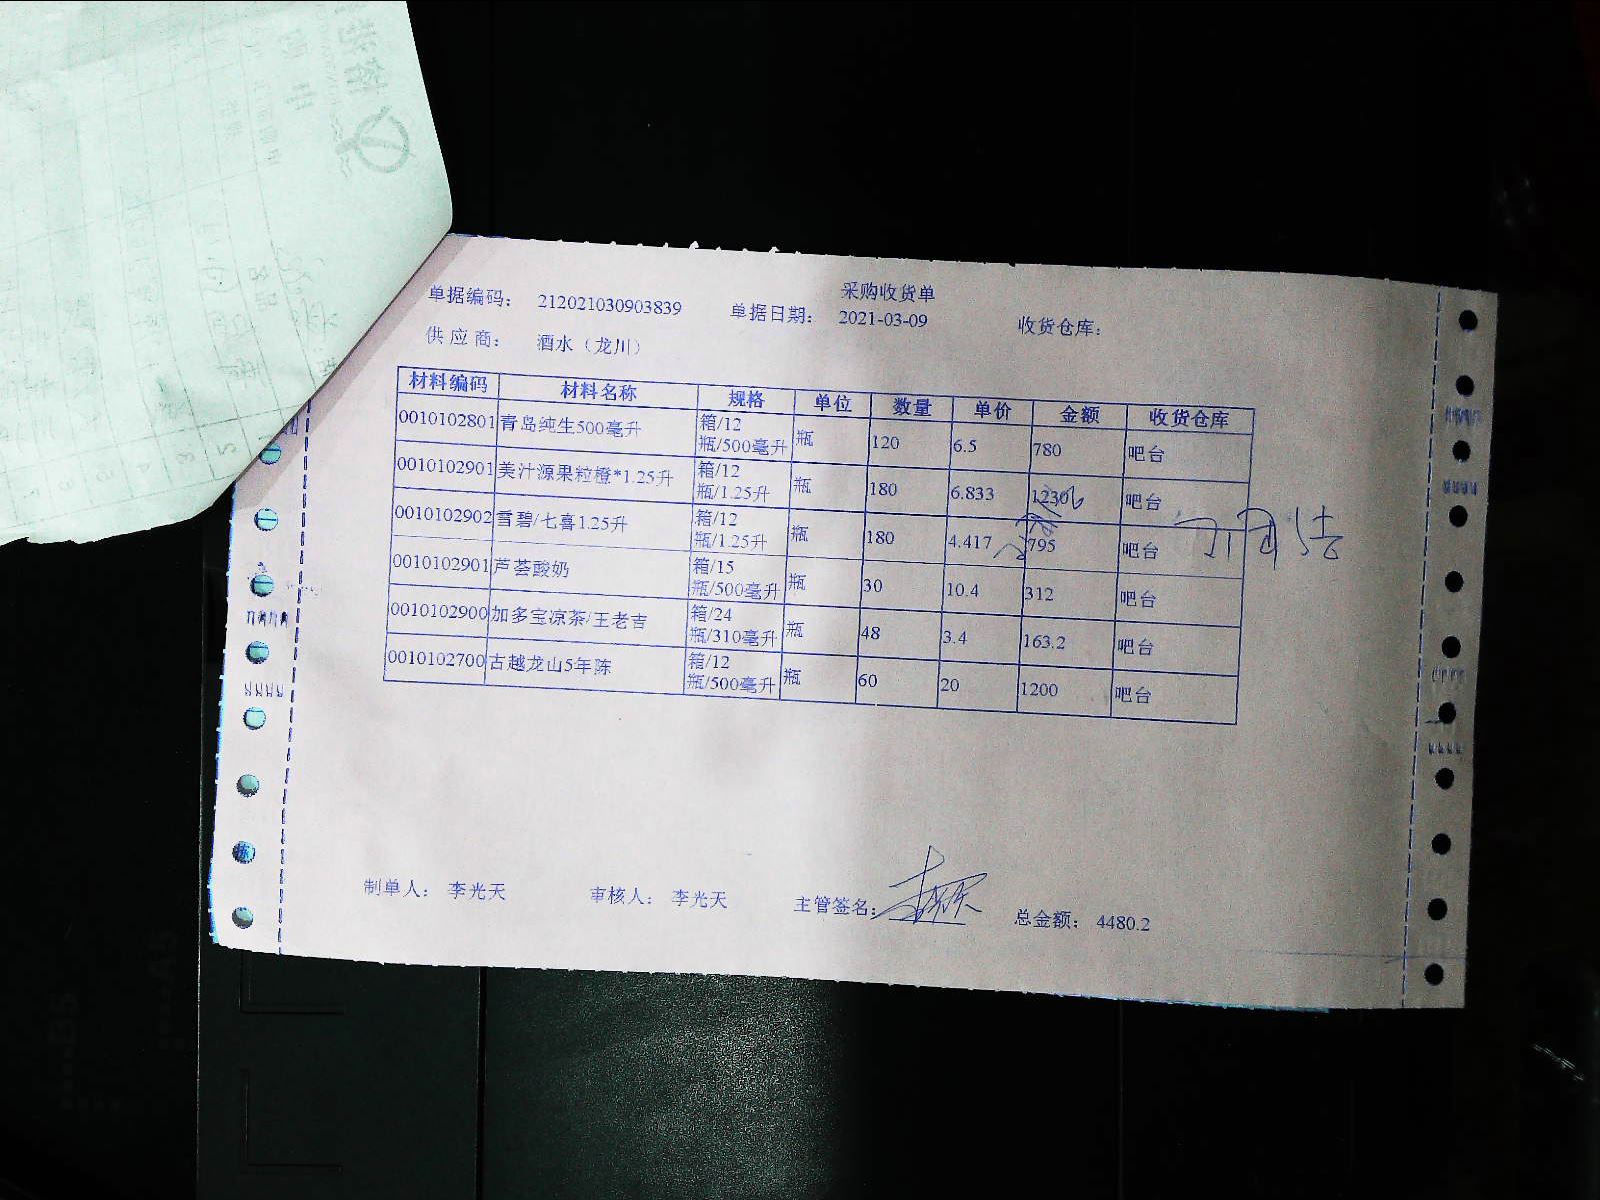 采购收货单
单据编码： 212021030903839 单据日期： 2021-03-09 收货仓库：
供应商： 酒水（龙川）
材料编码 材料名称 规格 单位 数量 单价 金额 收货仓库
0010102801 青岛纯生500毫升 箱/12瓶/500毫升 瓶 120 6.5 780 吧台
0010102901 美汁源果粒橙*1.25升 箱/12瓶/1.25升 瓶 180 6.833 1230 吧台
0010102902 雪碧/七喜1.25升 箱/12瓶/1.25升 瓶 180 4.417 795 吧台
0010102901 芦荟酸奶 箱/15瓶/500毫升 瓶 30 10.4 312 吧台
0010102900 加多宝凉茶/王老吉 箱/24瓶/310毫升 瓶 48 3.4 163.2 吧台
0010102700 古越龙山5年陈 箱/12瓶/500毫升 瓶 60 20 1200 吧台
制单人： 李光天 审核人： 李光天 主管签名： 总金额： 4480.2